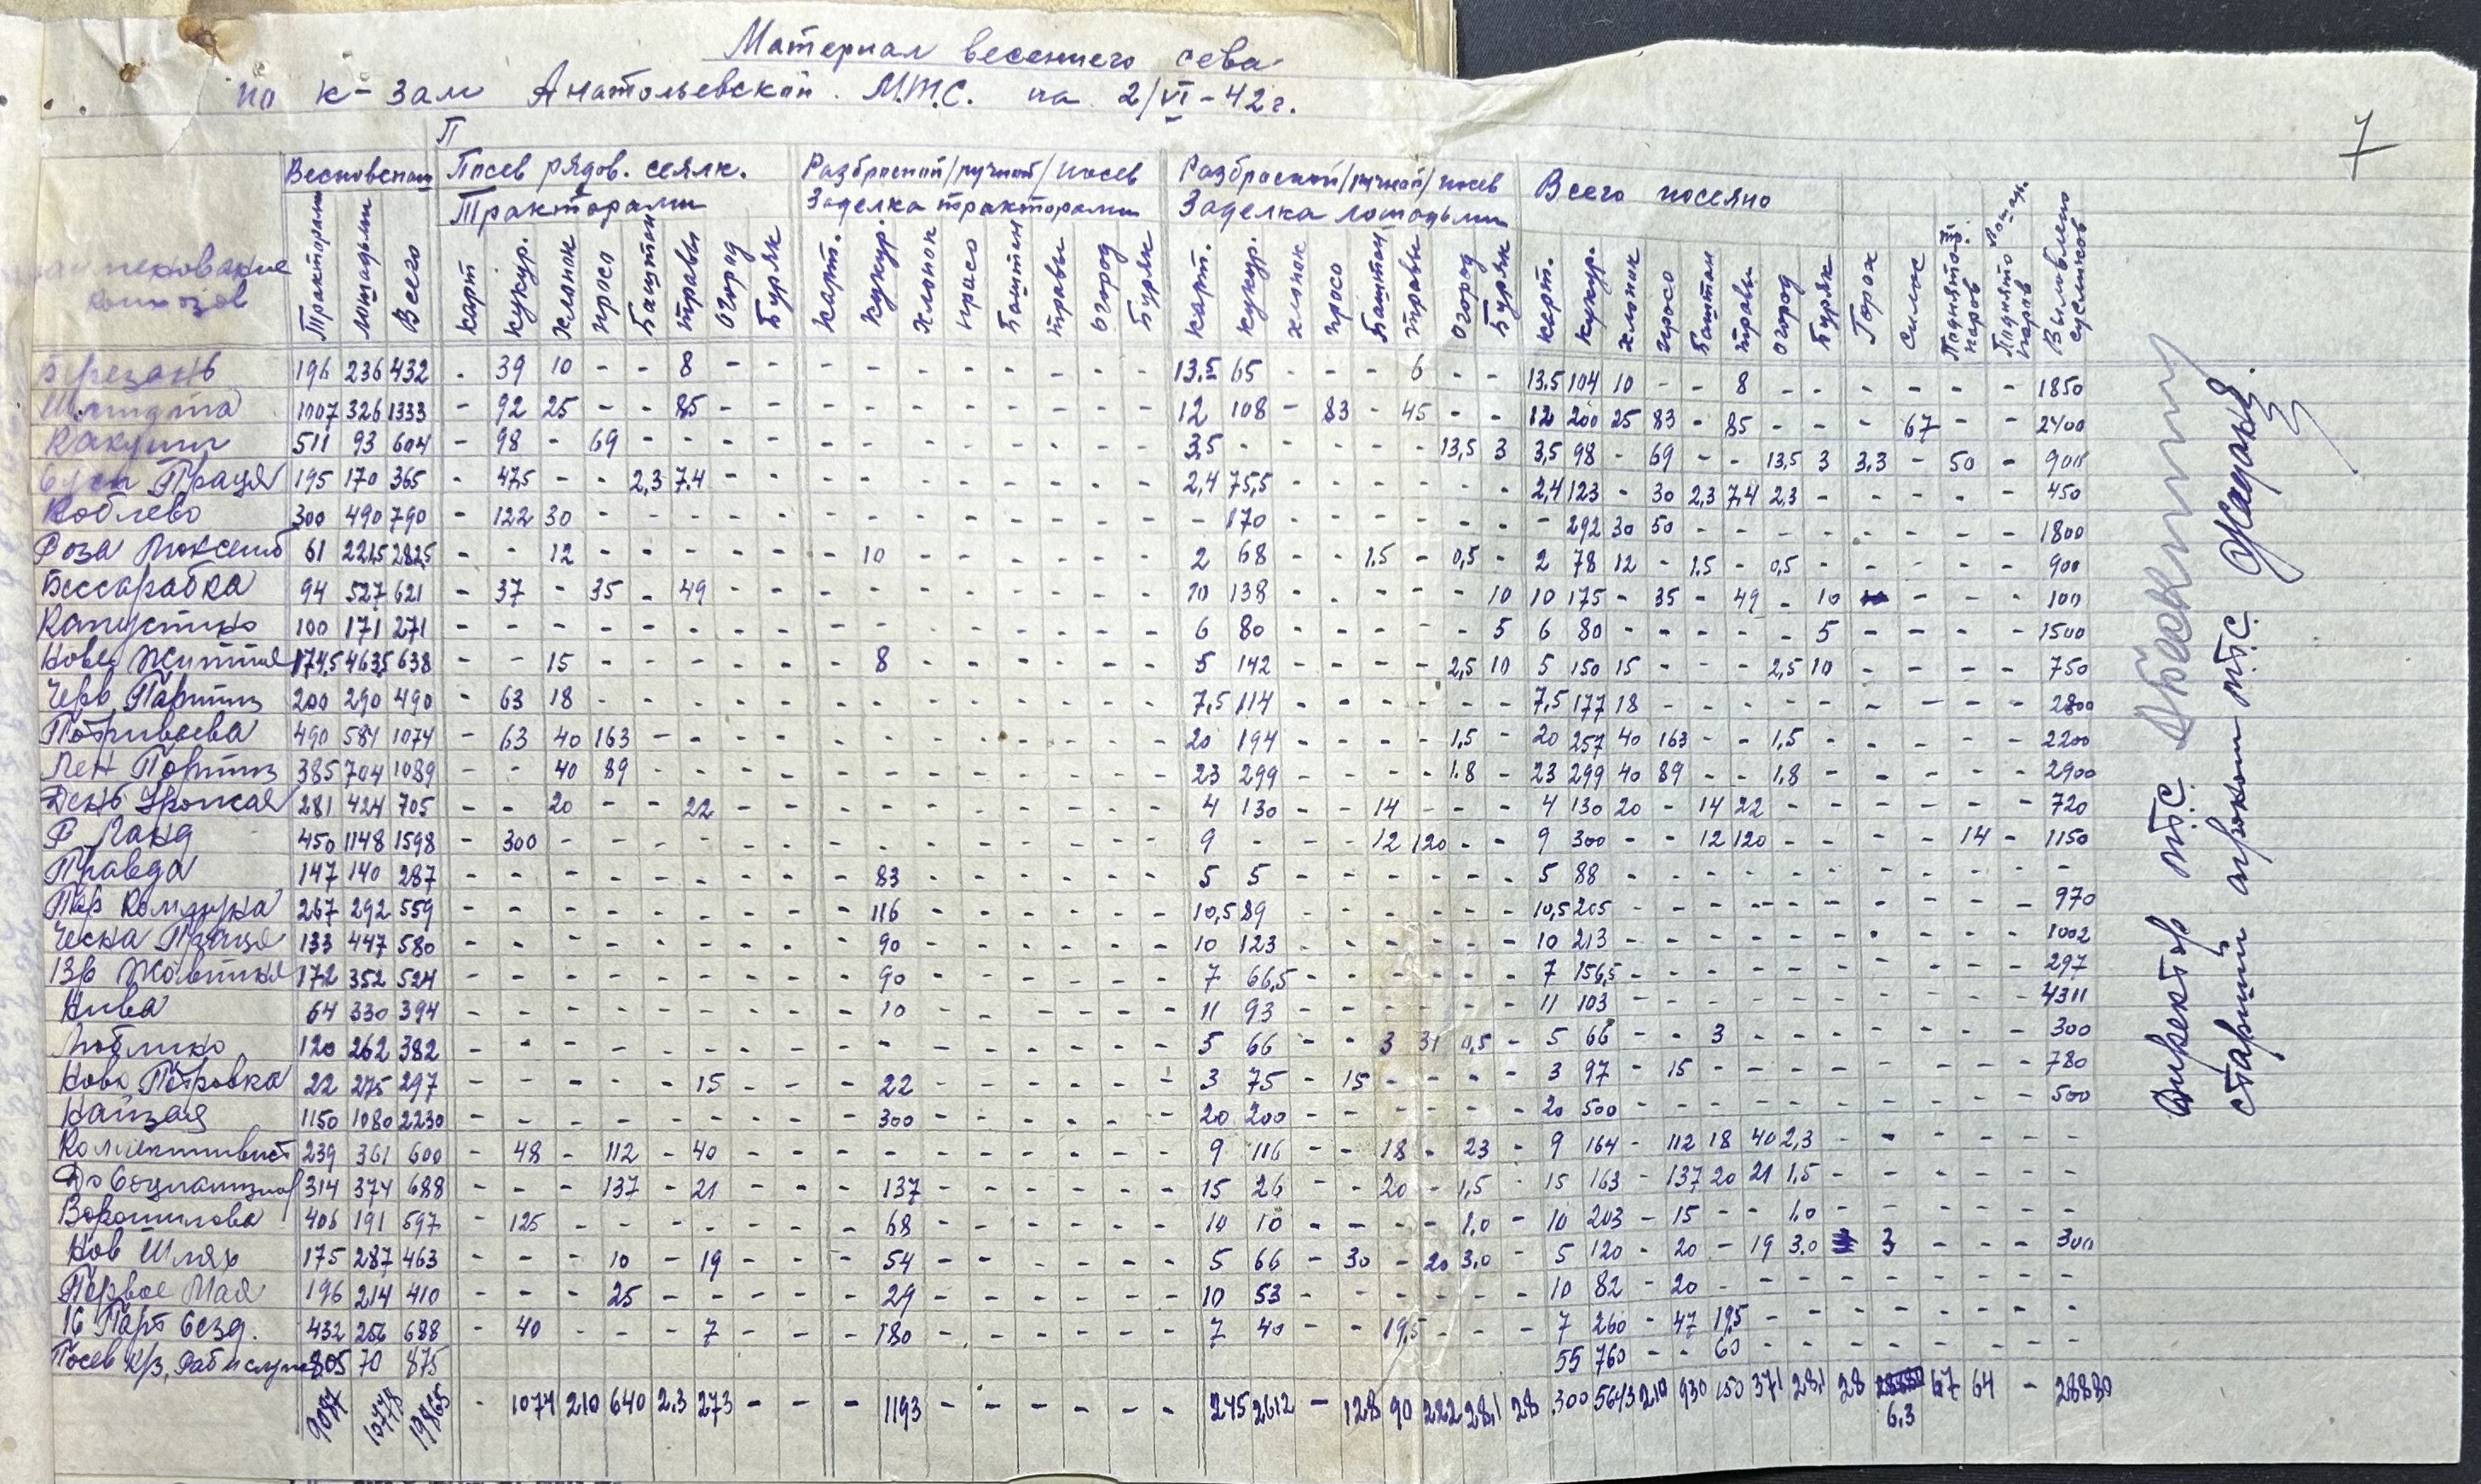 Материал весеннего сева
по к-зам Анатольевской М.Т.С. на 2/VI-42 г.
7
П
Весновспаш Посев рядов. сеялк. Разбросной/ручной/посев Разбросной/ручной/посев Всего посеяно
Тракторами Заделка тракторами Заделка лошадьми
наименование колхозов Тракторами Лошадьми Всего Карт Кукур. Хлопок Просо Баштан Травы Огород Буряк Карт. Кукур. Хлопок Просо Баштан Травы Огород Буряк Карт. Кукур. Хлопок Просо Баштан Травы Огород Буряк Карт. Кукур. Хлопок Просо Баштан Травы Огород Буряк Горох Силос Поднято тр. паров Поднято лошад. паров Выловлено сусликов
Березань 196 236 432 - 39 10 - - 8 - - - - - - - - - - 13.5 65 - - - 6 - - 13.5 104 10 - - 8 - - - - - - 1850
1007 326 1333 - 92 25 - - 85 - - - - - - - - - - 12 108 - 83 - 45 - - 12 200 25 83 - 85 - - - 67 - - 2400
511 93 604 - 98 - 69 - - - - - - - - - - - - 3,5 - - - - - 13,5 3 3,5 98 - 69 - - 13,5 3 3,3 - 50 - 900
Праця 195 170 365 - 47,5 - - 2,3 7.4 - - - - - - - - - - 2,4 75,5 - - - - - - 2,4 123 - 30 2,3 7,4 2,3 - - - - - 450
Коблево 300 490 790 - 122 30 - - - - - - - - - - - - - - 170 - - - - - - - 292 30 50 - - - - - - - - 1800
Роза Люксемб 61 221,5 282,5 - - 12 - - - - - - 10 - - - - - - 2 68 - - 1.5 - 0,5 - 2 78 12 - 1.5 - 0,5 - - - - - 900
Бессарабка 94 527 621 - 37 - 35 - 49 - - - - - - - - - - 10 138 - - - - - 10 10 175 - 35 - 49 - 10 - - - 100
Капустино 100 171 271 - - - - - - - - - - - - - - - - 6 80 - - - - - 5 6 80 - - - - - 5 - - - - 1500
Нове Життя 174,5 463,5 638 - - 15 - - - - - - 8 - - - - - - 5 142 - - - - 2,5 10 5 150 15 - - - 2,5 10 - - - - 750
Черв. Партиз 200 290 490 - 63 18 - - - - - - - - - - - - - 7,5 114 - - - - - - 7,5 177 18 - - - - - - - - - 2800
490 584 1074 - 63 40 163 - - - - - - - - - - - - 20 194 - - - - 1,5 - 20 257 40 163 - - 1,5 - - - - - 2200
Лен Партиз 385 704 1089 - - 40 89 - - - - - - - - - - - - 23 299 - - - - 1.8 - 23 299 40 89 - - 1.8 - - - - - 2900
День Урожая 281 424 705 - - 20 - - 22 - - - - - - - - - - 4 130 - - 14 - - - 4 130 20 - 14 22 - - - - - - 720
Р Ланд 450 1148 1598 - 300 - - - - - - - - - - - - - - 9 - - - 12 120 - - 9 300 - - 12 120 - - - - 14 - 1150
Правда 147 140 287 - - - - - - - - - 83 - - - - - - 5 5 - - - - - - 5 88 - - - - - - - - - - -
267 292 559 - - - - - - - - - 116 - - - - - - 10,5 89 - - - - - - 10,5 205 - - - - - - - - - - 970
Чесна Праця 133 447 580 - - - - - - - - - 90 - - - - - - 10 123 - - - - - - 10 213 - - - - - - - - - - 1002
13р Жовтня 172 352 524 - - - - - - - - - 90 - - - - - - 7 66,5 - - - - - - 7 156,5 - - - - - - - - - - 297
Нива 64 330 394 - - - - - - - - - 10 - - - - - - 11 93 - - - - - - 11 103 - - - - - - - - - - 4311
Люблино 120 262 382 - - - - - - - - - - - - - - - - 5 66 - - 3 31 0,5 - 5 66 - - 3 - - - - - - - 300
Ново Петровка 22 275 297 - - - - - 15 - - - 22 - - - - - - 3 75 - 15 - - - - 3 97 - 15 - - - - - - - - 780
1150 1080 2230 - - - - - - - - - 300 - - - - - - 20 200 - - - - - - 20 500 - - - - - - - - - - 500
Коллективист 239 361 600 - 48 - 112 - 40 - - - - - - - - - - 9 116 - - 18 - 23 - 9 164 - 112 18 40 2,3 - - - - - -
До Социализма 314 374 688 - - - 137 - 21 - - - 137 - - - - - - 15 26 - - 20 - 1,5 - 15 163 - 137 20 21 1,5 - - - - - -
Ворошилова 406 191 597 - 125 - - - - - - - 68 - - - - - - 10 10 - - - - 1,0 - 10 203 - 15 - - 1.0 - - - - - -
Нов Шлях 175 287 463 - - - 10 - 19 - - - 54 - - - - - - 5 66 - 30 - 20 3,0 - 5 120 - 20 - 19 3.0 3 - - - 300
Первое Мая 196 214 410 - - - 25 - - - - - 29 - - - - - - 10 53 - - - - - - 10 82 - 20 - - - - - - - - -
16 Парт Сезд. 432 256 688 - 40 - - - 7 - - - 180 - - - - - - 7 40 - - 19,5 - - - 7 260 - 47 19,5 - - - - - - - -
Посев к/з, раб и служ 805 70 875 55 760 - - 60 - - - - - - - -
9087 10778 19865 - 1074 210 640 2.3 273 - - - 1193 - - - - - - 245 2612 - 128 90 222 28,1 28 300 5643 210 930 150 371 28,1 28 6.3 67 64 - 28880
Директор МТС
Старший агроном МТС